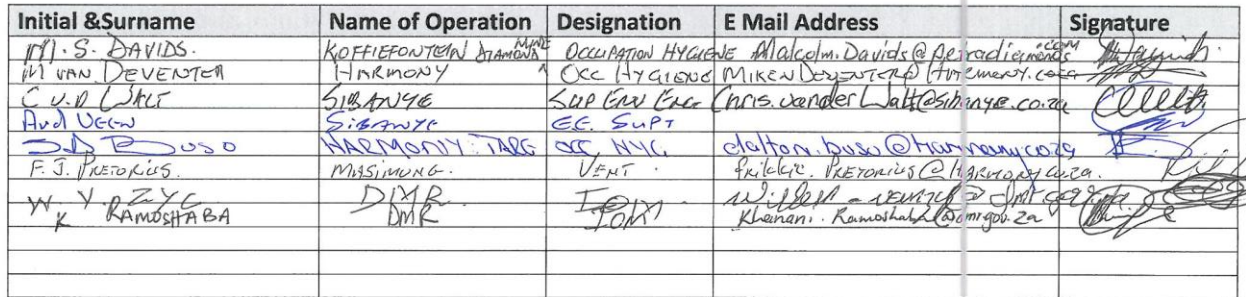 Initial &Surname Name of Operation Designation E Mail Address Signature
M. S. DAVIDS. KOFFIEFONTEIN DIAMOND MINE OCCUPATION HYGIENE Malcolm.Davids@petradiamonds.com
M VAN DEVENTER HARMONY OCC HYGIENE
C V.D WALT SIBANYE SUP ENV ENG Chris.vanderWalt@sibanye.co.za
SIBANYE E.E. SUPT
BUSO HARMONY: TARG OCC HYG dalton.buso@harmony.co.za
F. J. PRETORIUS. MASIMONG. VENT PRETORIUS@HARMONY.co.za.
W. V. ZYC DMR IOM
K RAMOSHABA DMR IOM